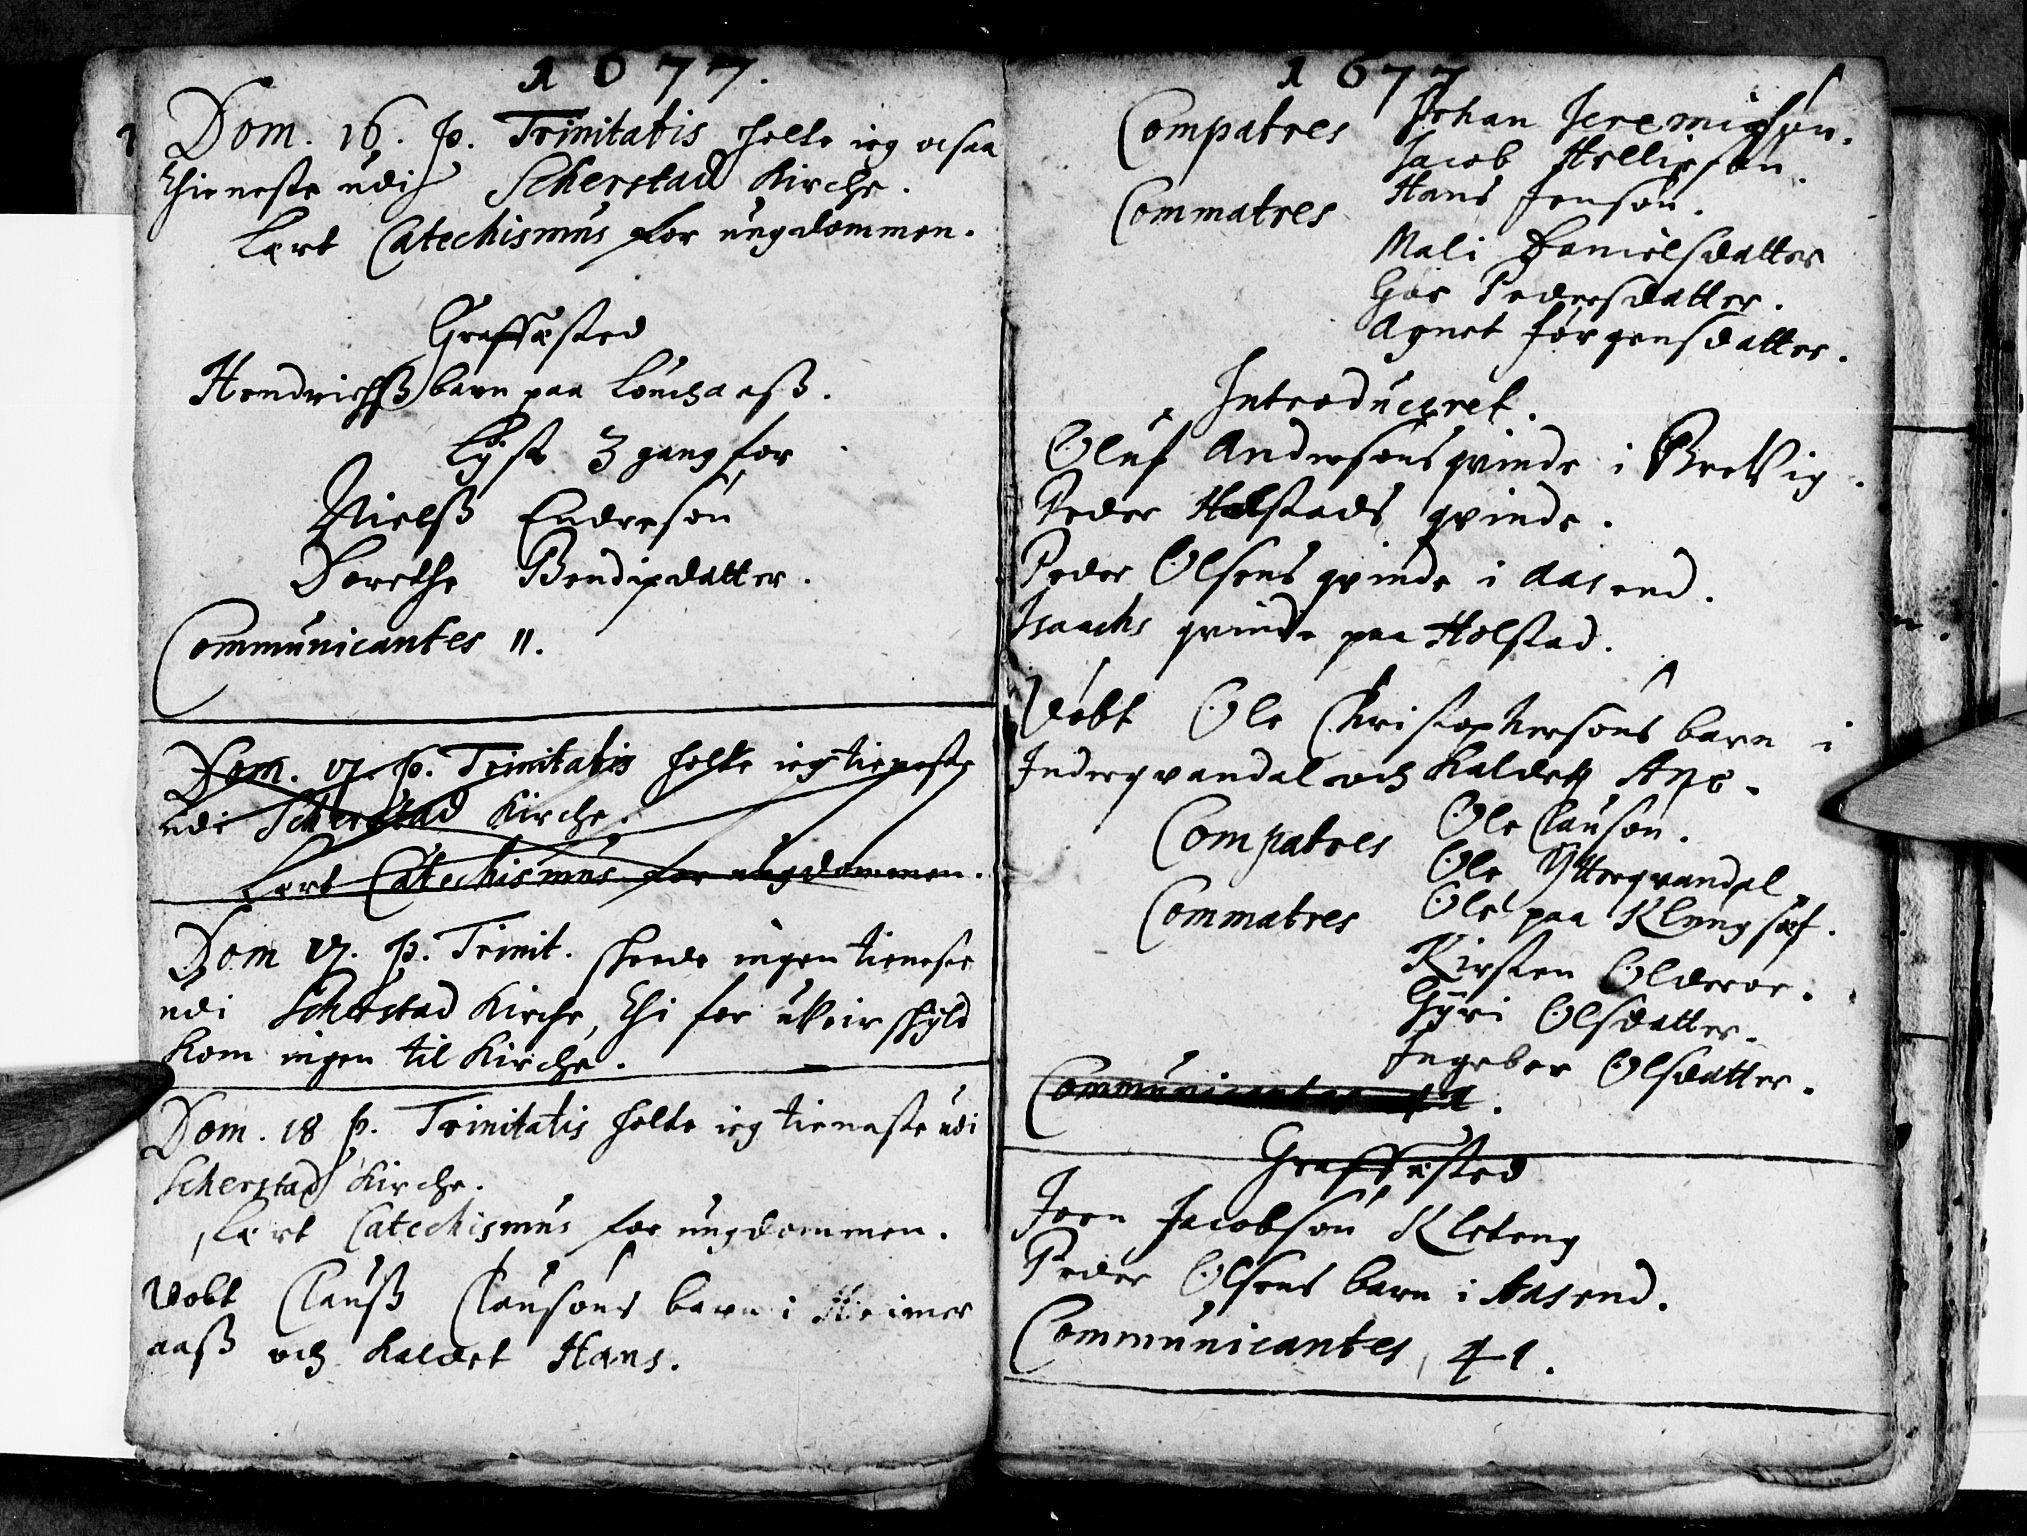 1677.
Dom. 16. p. Trinitatis holte ieg ocsaa
thieneste udi Scherstad Kirche.
Lært Catechismus for ungdommen.
Graffæsted
Hendrichß barn paa
Lÿst 3 gang for
Nielß Endresøn
Dorethe Bendixdatter.
Communicantes 11.
Dom. 17. p. Trinitatis holte ieg tieneste
udi Scherstad Kirche.
Lært Catechismus for ungdommen.
Dom 17. p. Trinit. skeede ingen tieneste
udi Scherstad Kirche, thi for uveir skÿld
kom ingen til Kirche.
Dom. 18 p. Trinitatis holte ieg tieneste udi
Scherstad Kirche.
Lært Catechismus for ungdommen.
Døbt Clauß Clausøns barn i Heimer
aaß och kaldet Hans.
1677
Compatres Johan Jeremiæsøn.
Jacob Hellesøn.
Hans Jensøn.
Commatres
Mali Danielsdatter
Gør Pedersdatter.
Agnet Jørgensdatter.
Introduceret.
Oluf Andersøns qvinde i Bretvig.
Peder Holstads qvinde.
Peder Olsens qvinde i Aasend.
Isaachs qvinde paa Holstad.
Døbt Ole Christophersøns barn i
Inderqvandal och kaldet
Compatres Ole Clausøn.
Ole Ytterqvandal.
Ole paa Klungsæt.
Commatres
Kirsten Olderøe.
Gÿri Olsdatter.
Ingebor Olsdatter.
Communicantes 41.
Graffæsted
Joen Jacobsøn Kleteng
Peder Olsens barn i Aasend.
Communicantes 41.